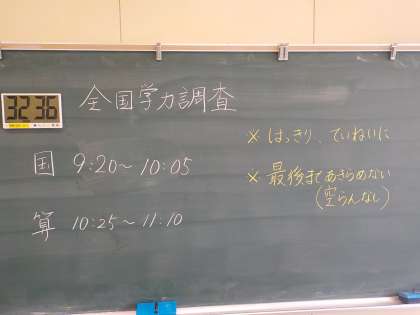 全国学力調査
32 36
国 9:20～10:05
算 10:25～11:10
× はっきり、ていねいに
× 最後まであきらめない
(空らんなし)